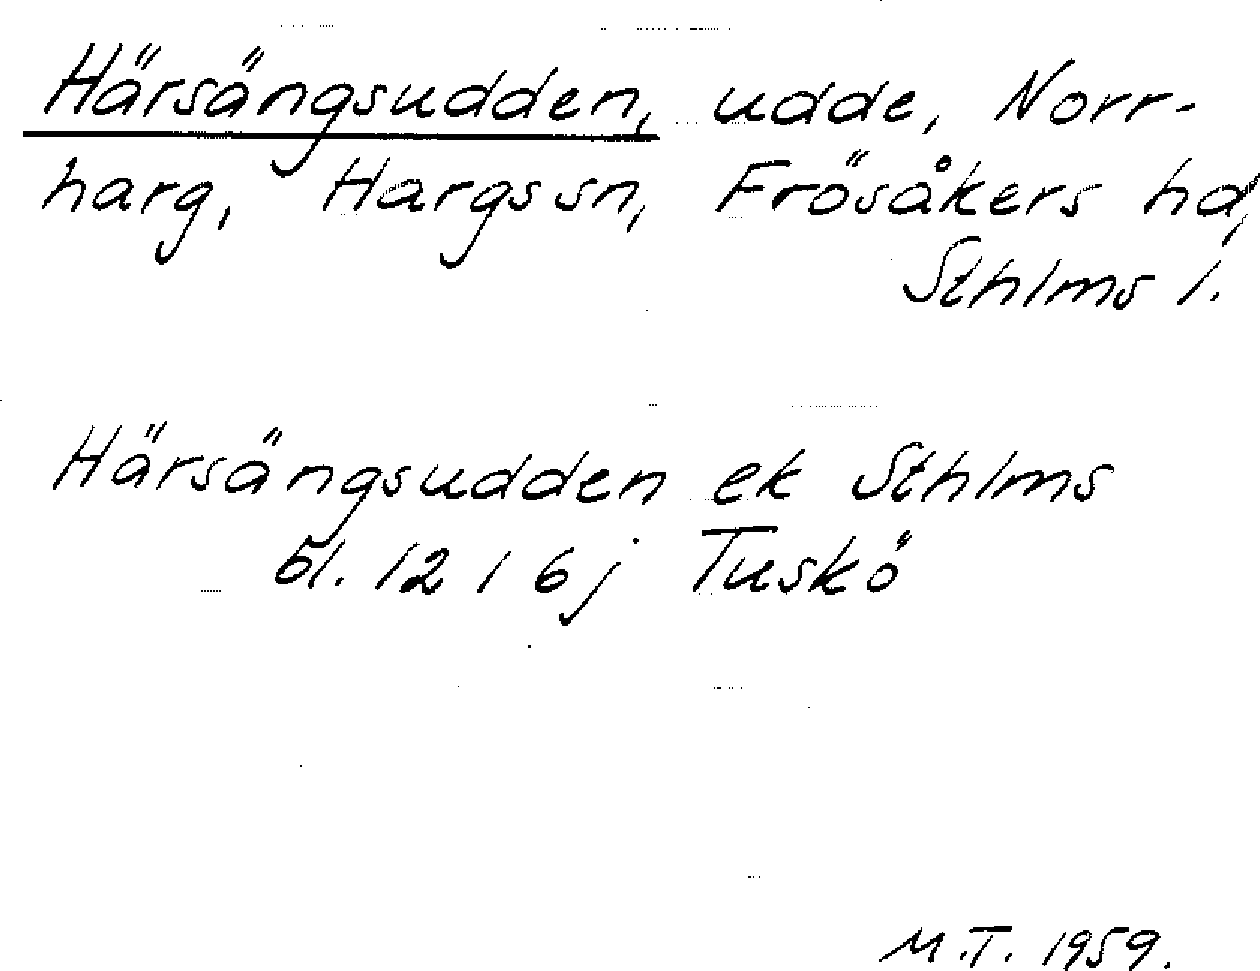 Härsängsudden, udde, Norr-
harg, Hargs sn, Frösåkers hd,
Sthlms l.
Härsängsudden ek Sthlms
bl. 12 I 6j Tuskö
M.T. 1959.